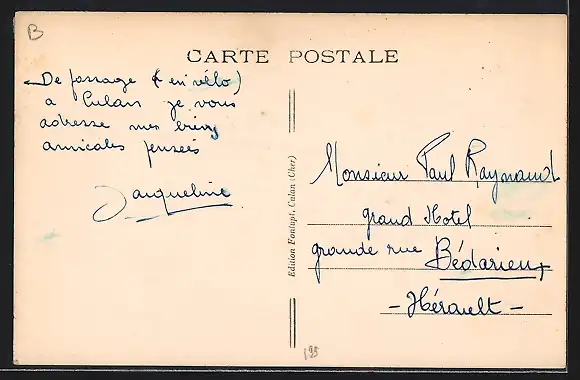 B
CARTE POSTALE
De passage (en vélo)
a Culan je vous
adresse mes
amicales pensées
Jacqueline
Edition Fontupt, Culan (Cher)
Monsieur Paul Raynaud
grand Hotel
grande rue
Bédarieux
- Hérault -
195